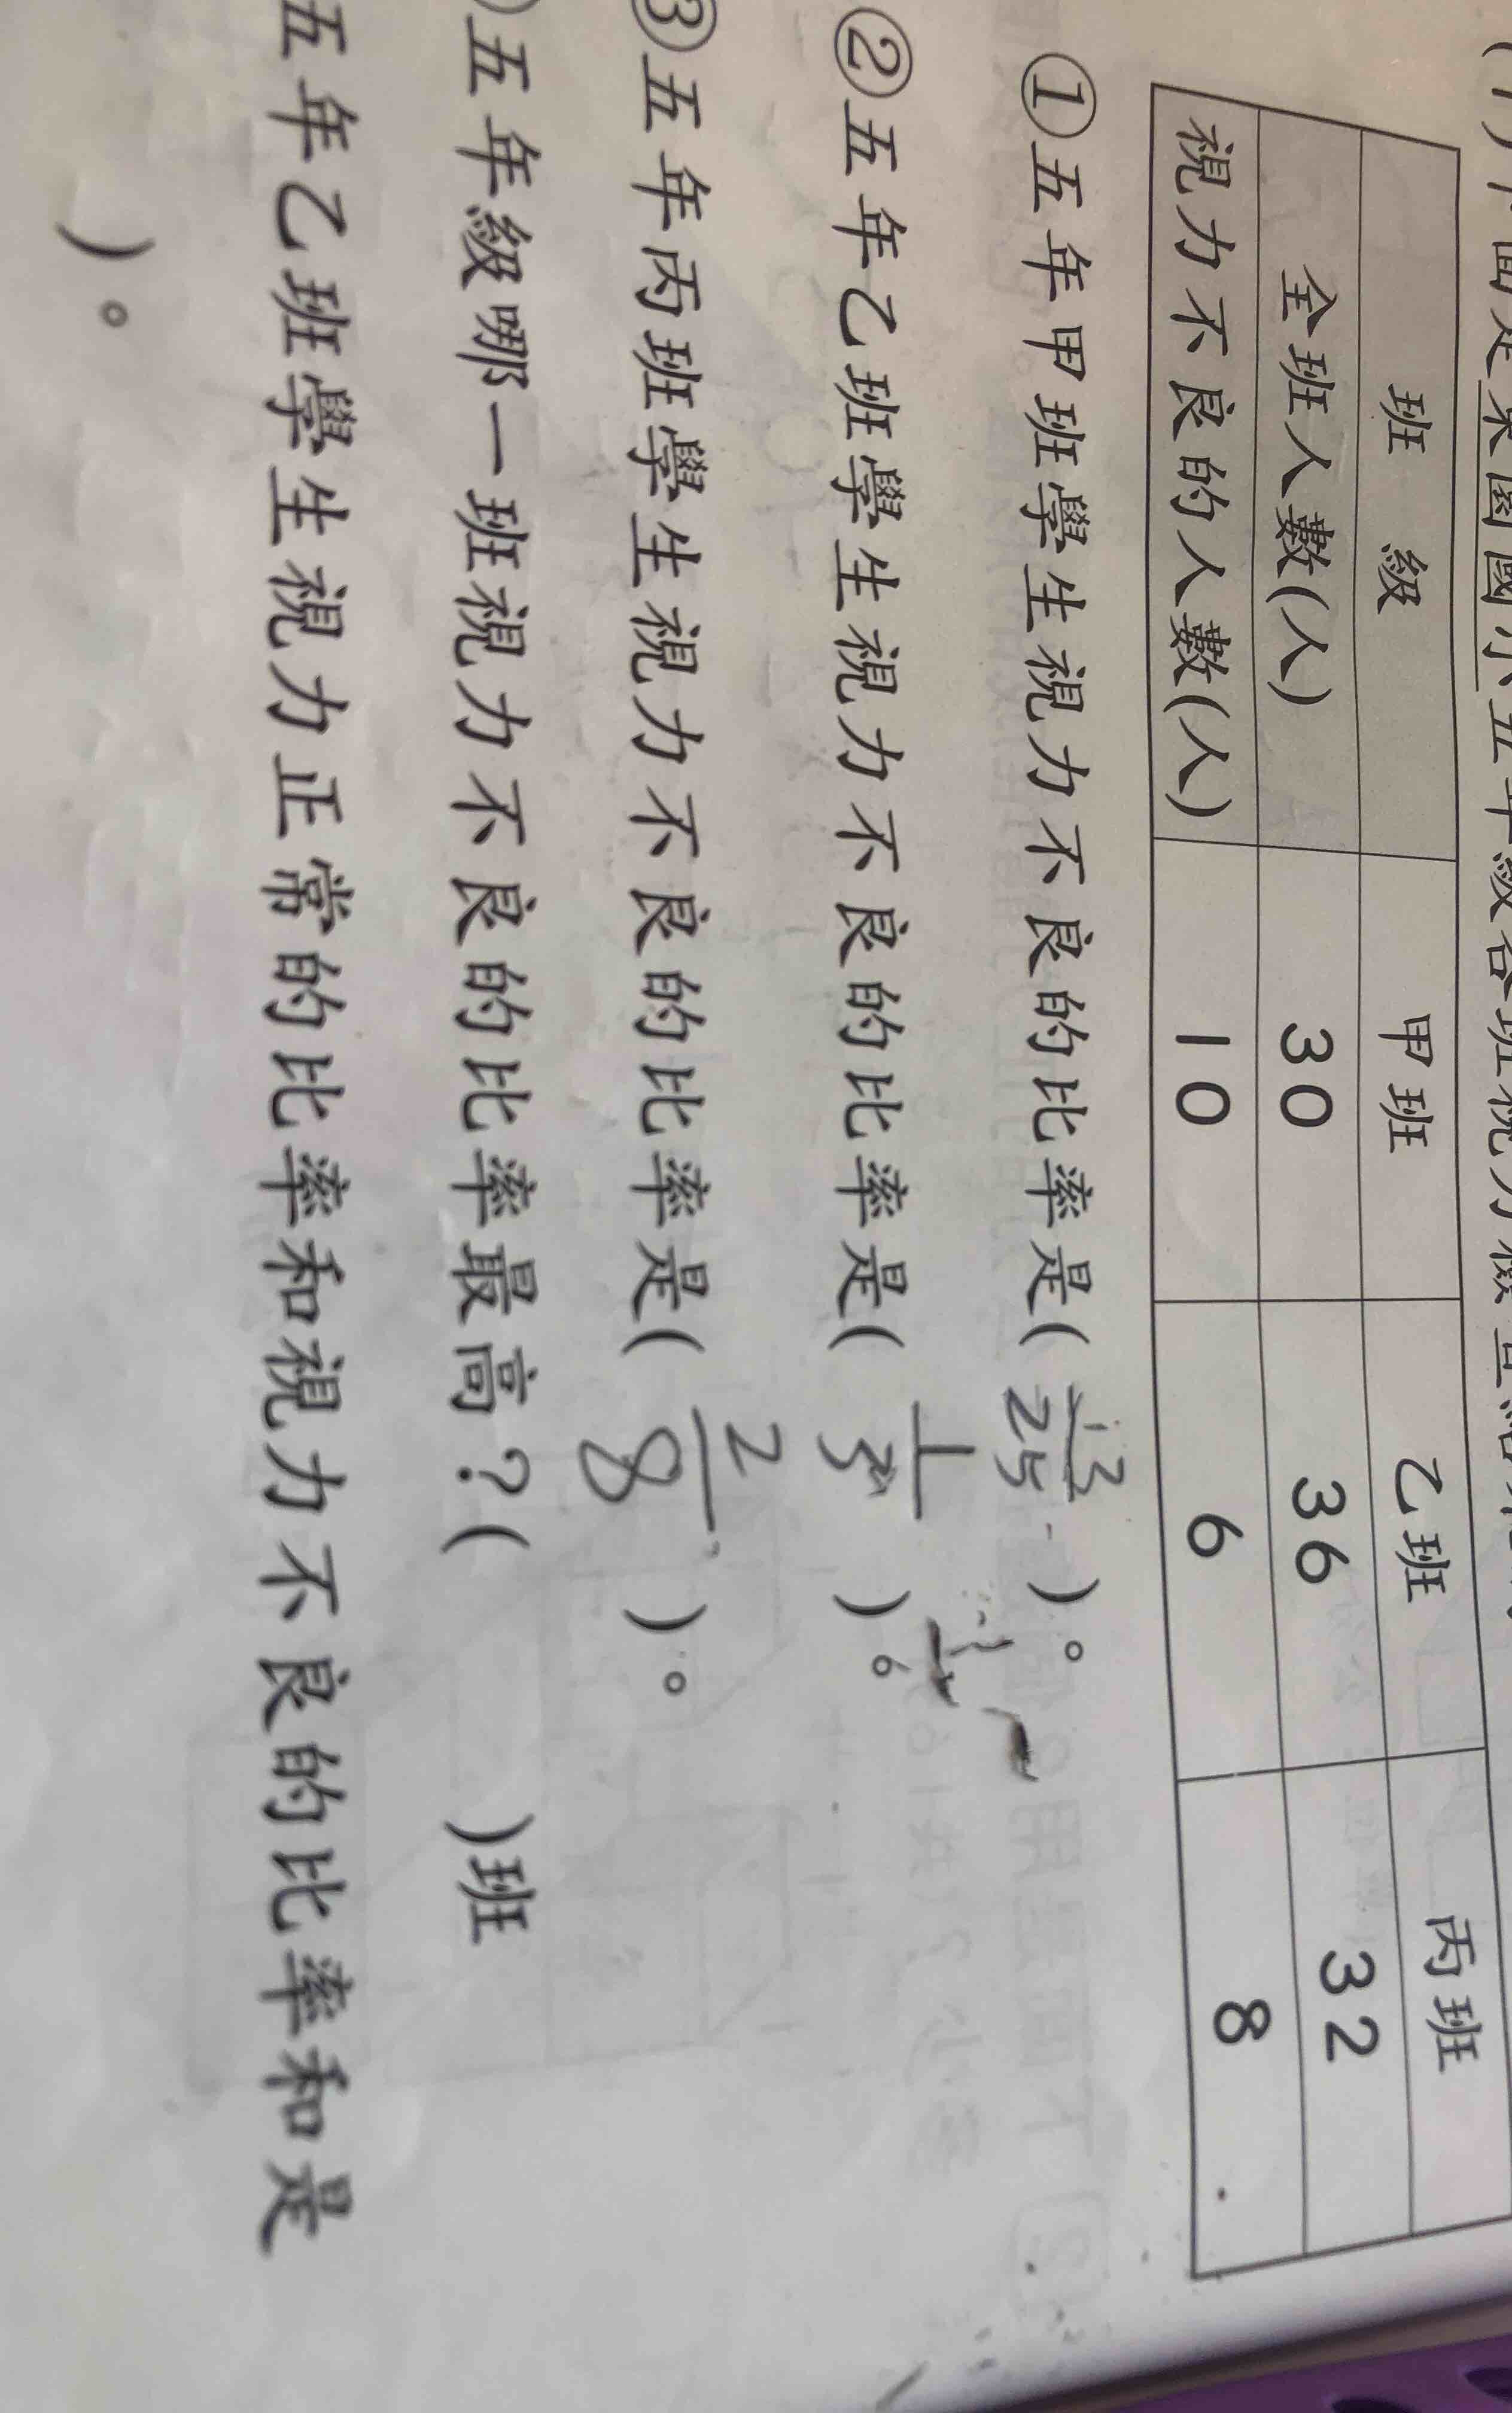 班 級 甲班 乙班 丙班
全班人數(人) 30 36 32
視力不良的人數(人) 10 6 8
①五年甲班學生視力不良的比率是( )。
②五年乙班學生視力不良的比率是( 1/3 )。
③五年丙班學生視力不良的比率是( 2/8 )。
五年級哪一班視力不良的比率最高？( )班
五年乙班學生視力正常的比率和視力不良的比率和是
)。